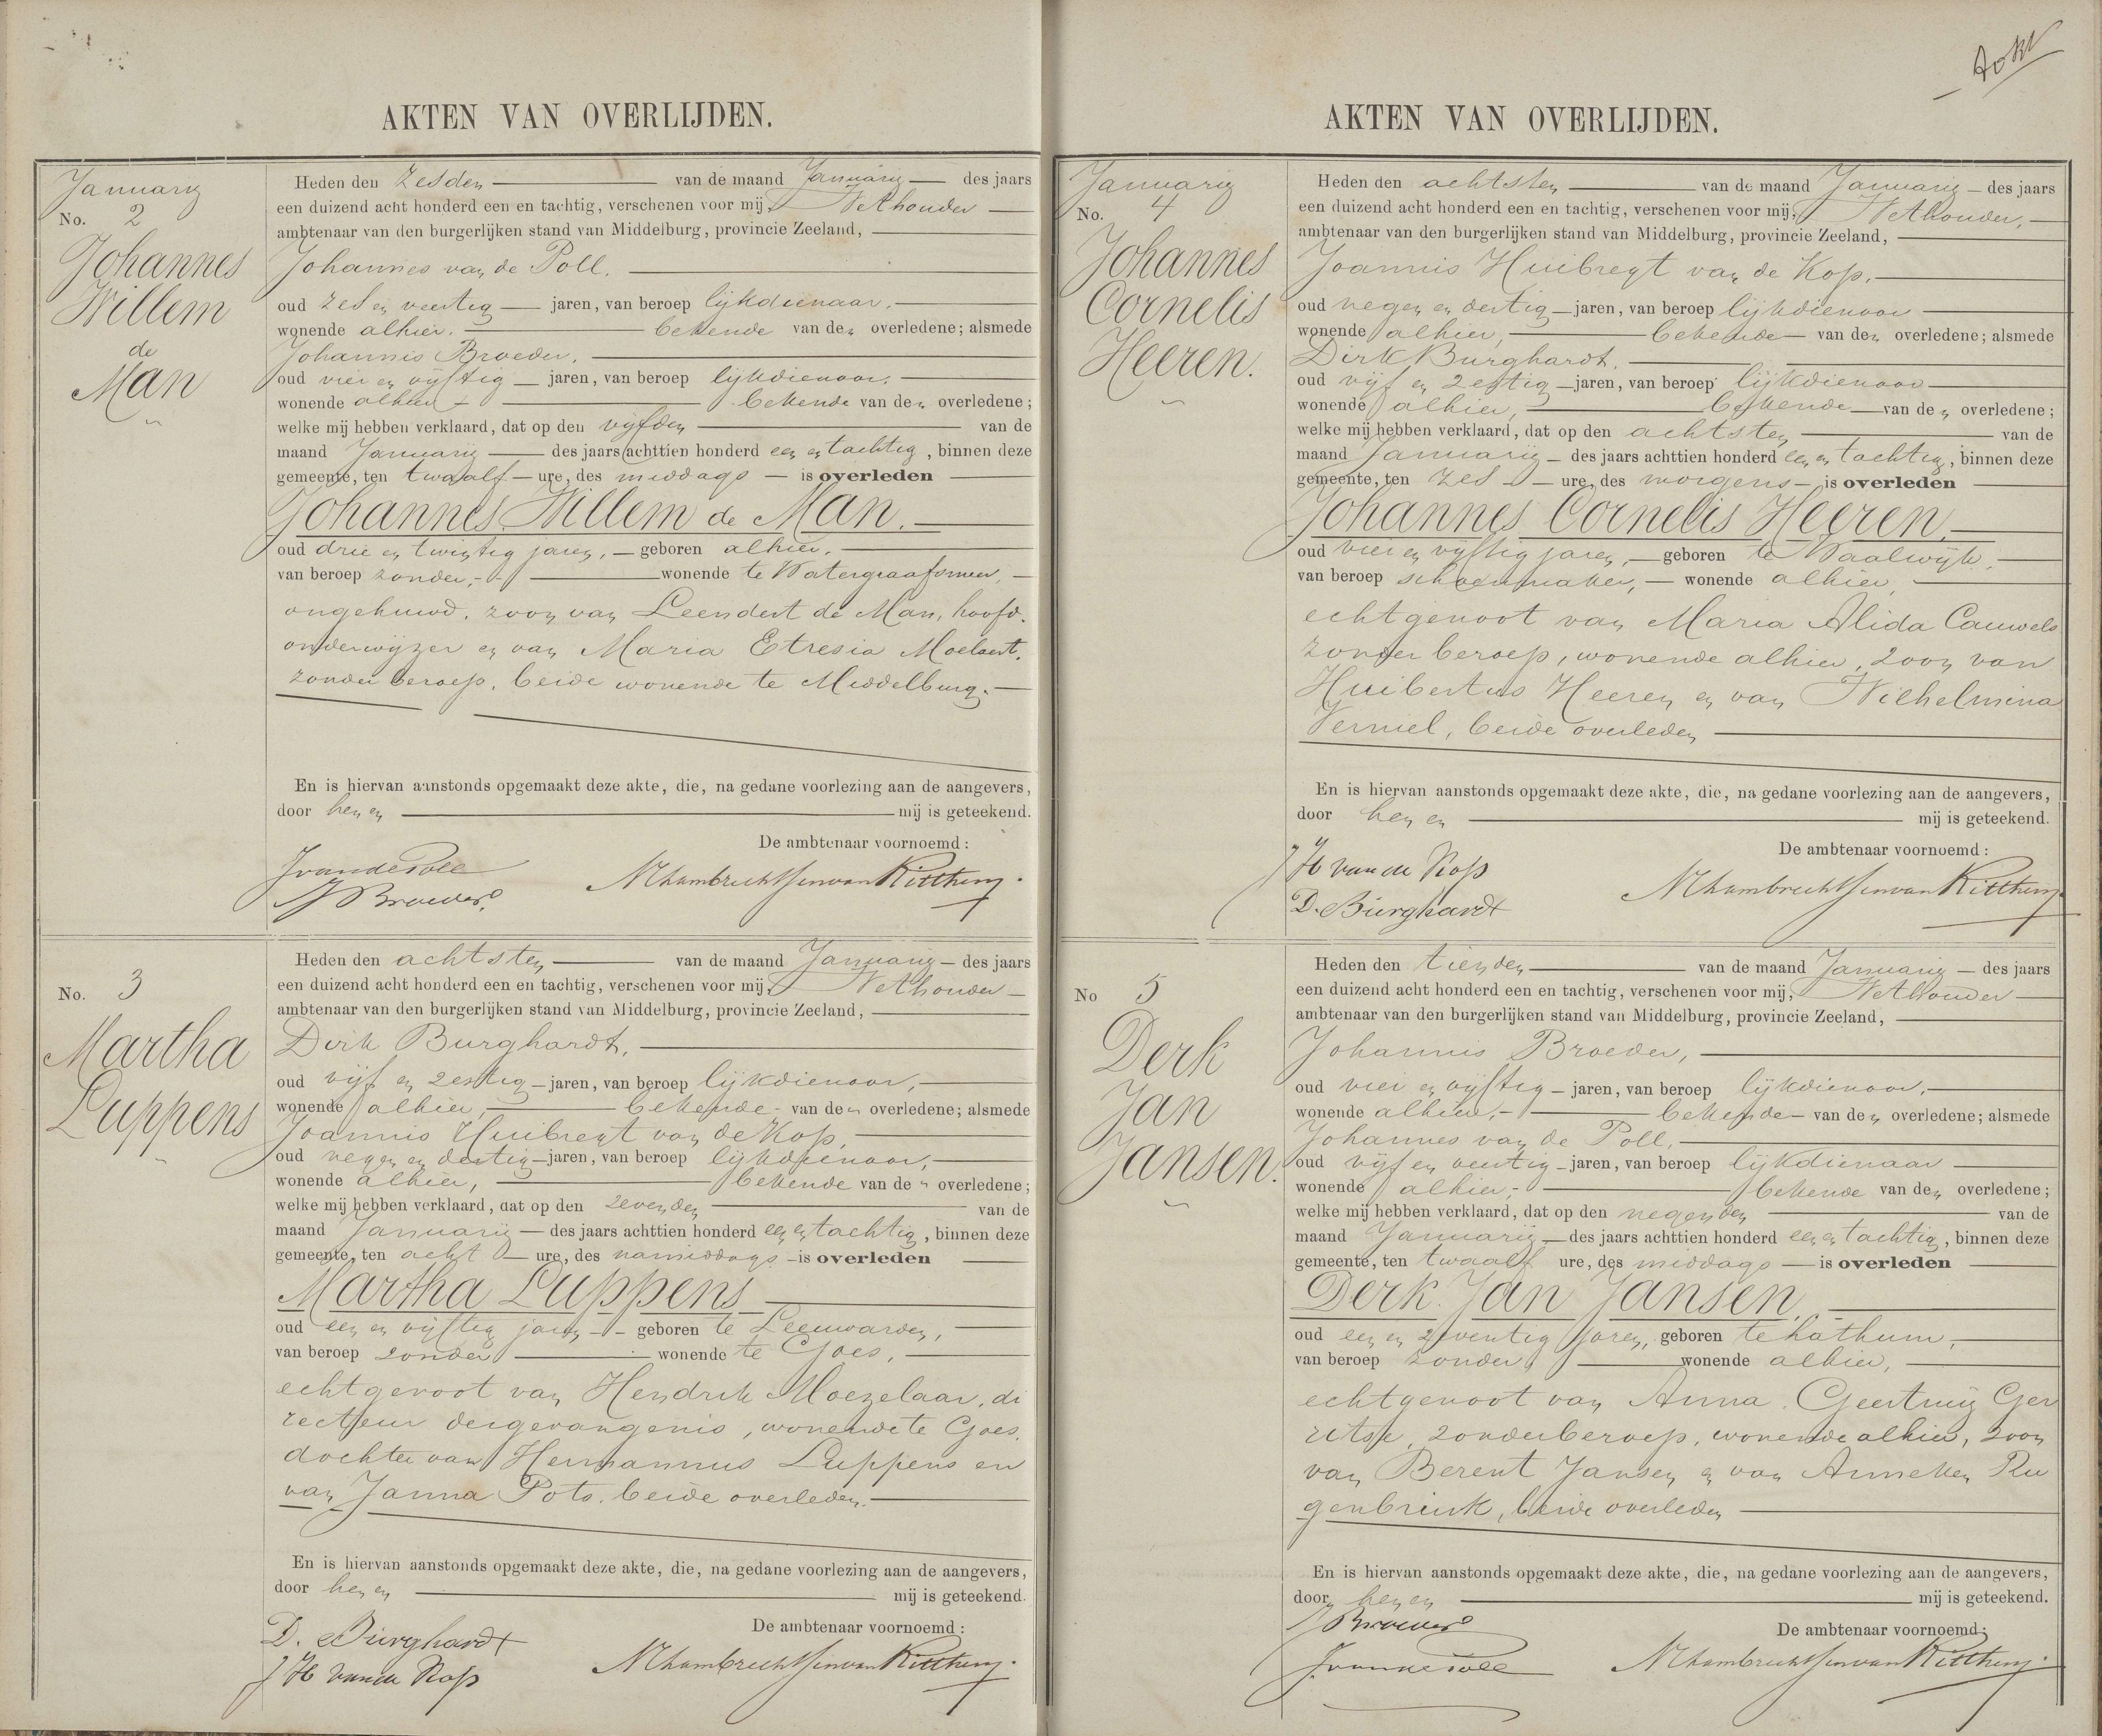 AKTEN VAN OVERLIJDEN.
Januarij
No. 2
Johannes
Willem
de
Man
Heden den zesden van de maand Januarij des jaars
een duizend acht honderd een en tachtig, verschenen voor mij, Wethouder
ambtenaar van den burgerlijken stand van Middelburg, provincie Zeeland,
Johannes van de Poll,
oud zes en veertig jaren, van beroep lijkdienaar,
wonende alhier, bekende van den overledene; alsmede
Johannis Broeder,
oud vier en vijftig jaren, van beroep lijkdienaar,
wonende alhier bekende van den overledene;
welke mij hebben verklaard, dat op den vijfden van de
maand Januarij des jaars achttien honderd een en tachtig, binnen deze
gemeente, ten twaalf ure, des middags is overleden
Johannes Willem de Man.
oud drie en twintig jaren, geboren alhier,
van beroep zonder, wonende te Watergraafsmeer,
ongehuwd, zoon van Leendert de Man, hoofd-
onderwijzer en van Maria Etresia Moelaert,
zonder beroep, beide wonende te Middelburg.
En is hiervan aanstonds opgemaakt deze akte, die, na gedane voorlezing aan de aangevers,
door hen en mij is geteekend.
De ambtenaar voornoemd:
J van de Poll
J Broeder
No. 3
Martha
Luppens
Heden den achtsten van de maand Januarij des jaars
een duizend acht honderd een en tachtig, verschenen voor mij, Wethouder
ambtenaar van den burgerlijken stand van Middelburg, provincie Zeeland,
Dirk Burghardt,
oud vijf en zestig jaren, van beroep lijkdienaar,
wonende alhier, bekende van den overledene; alsmede
Joannis Huibregt van de Kop,
oud negen en dertig jaren, van beroep lijkdienaar,
wonende alhier, bekende van den overledene;
welke mij hebben verklaard, dat op den zevenden van de
maand Januarij des jaars achttien honderd een en tachtig, binnen deze
gemeente, ten acht ure, des namiddags is overleden
Martha Luppens
oud een en vijftig jaren geboren te Leeuwarden,
van beroep zonder wonende te Goes,
echtgenoot van Hendrik Moezelaar, di
recteur dergevangenis, wonende te Goes,
dochter van Hermannus Luppens en
van Janna Pots, beide overleden.
En is hiervan aanstonds opgemaakt deze akte, die, na gedane voorlezing aan de aangevers,
door hen en mij is geteekend.
De ambtenaar voornoemd:
D. Burghardt
J H van de Kop
AKTEN VAN OVERLIJDEN.
Januarij
No. 4
Johannes
Cornelis
Heeren.
Heden den achtsten van de maand Januarij des jaars
een duizend acht honderd een en tachtig, verschenen voor mij, Wethouder,
ambtenaar van den burgerlijken stand van Middelburg, provincie Zeeland,
Joannis Huibregt van de Kop,
oud negen en dertig jaren, van beroep lijkdienaar
wonende alhier, bekende van den overledene; alsmede
Dirk Burghardt,
oud vijf en zestig jaren, van beroep lijkdienaar
wonende alhier, bekende van den overledene;
welke mij hebben verklaard, dat op den achtsten van de
maand Januarij des jaars achttien honderd een en tachtig, binnen deze
gemeente, ten zes ure, des morgens is overleden
Johannes Cornelis Heeren,
oud vier en vijftig jaren, geboren te Waalwijk,
van beroep schoenmaker, wonende alhier,
echtgenoot van Maria Alida Cauwels
zonder beroep, wonende alhier, zoon van
Huibertus Heeren en van Wilhelmina
Verniel, beide overleden
En is hiervan aanstonds opgemaakt deze akte, die, na gedane voorlezing aan de aangevers,
door hen en mij is geteekend.
De ambtenaar voornoemd:
J H van de Kop
D. Burghardt
No 5
Derk
Jan
Jansen.
Heden den tienden van de maand Januarij des jaars
een duizend acht honderd een en tachtig, verschenen voor mij, Wethouder
ambtenaar van den burgerlijken stand van Middelburg, provincie Zeeland,
Johannis Broeder,
oud vier en vijftig jaren, van beroep lijkdienaar,
wonende alhier, bekende van den overledene; alsmede
Johannes van de Poll,
oud vijf en veertig jaren, van beroep lijkdienaar
wonende alhier, bekende van den overledene;
welke mij hebben verklaard, dat op den negenden van de
maand Januarij des jaars achttien honderd een en tachtig, binnen deze
gemeente, ten twaalf ure, des middags is overleden
Derk Jan Jansen,
oud een en zeventig jaren, geboren te hathum,
van beroep zonder, wonende alhier,
echtgenoot van Anna Geertruij Ger
ritse, zonder beroep, wonende alhier, zoon
van Berent Jansen en van Anneken Ru
genbrink, beide overleden
En is hiervan aanstonds opgemaakt deze akte, die, na gedane voorlezing aan de aangevers,
door hen en mij is geteekend.
De ambtenaar voornoemd:
J Broeder
J. van de Poll